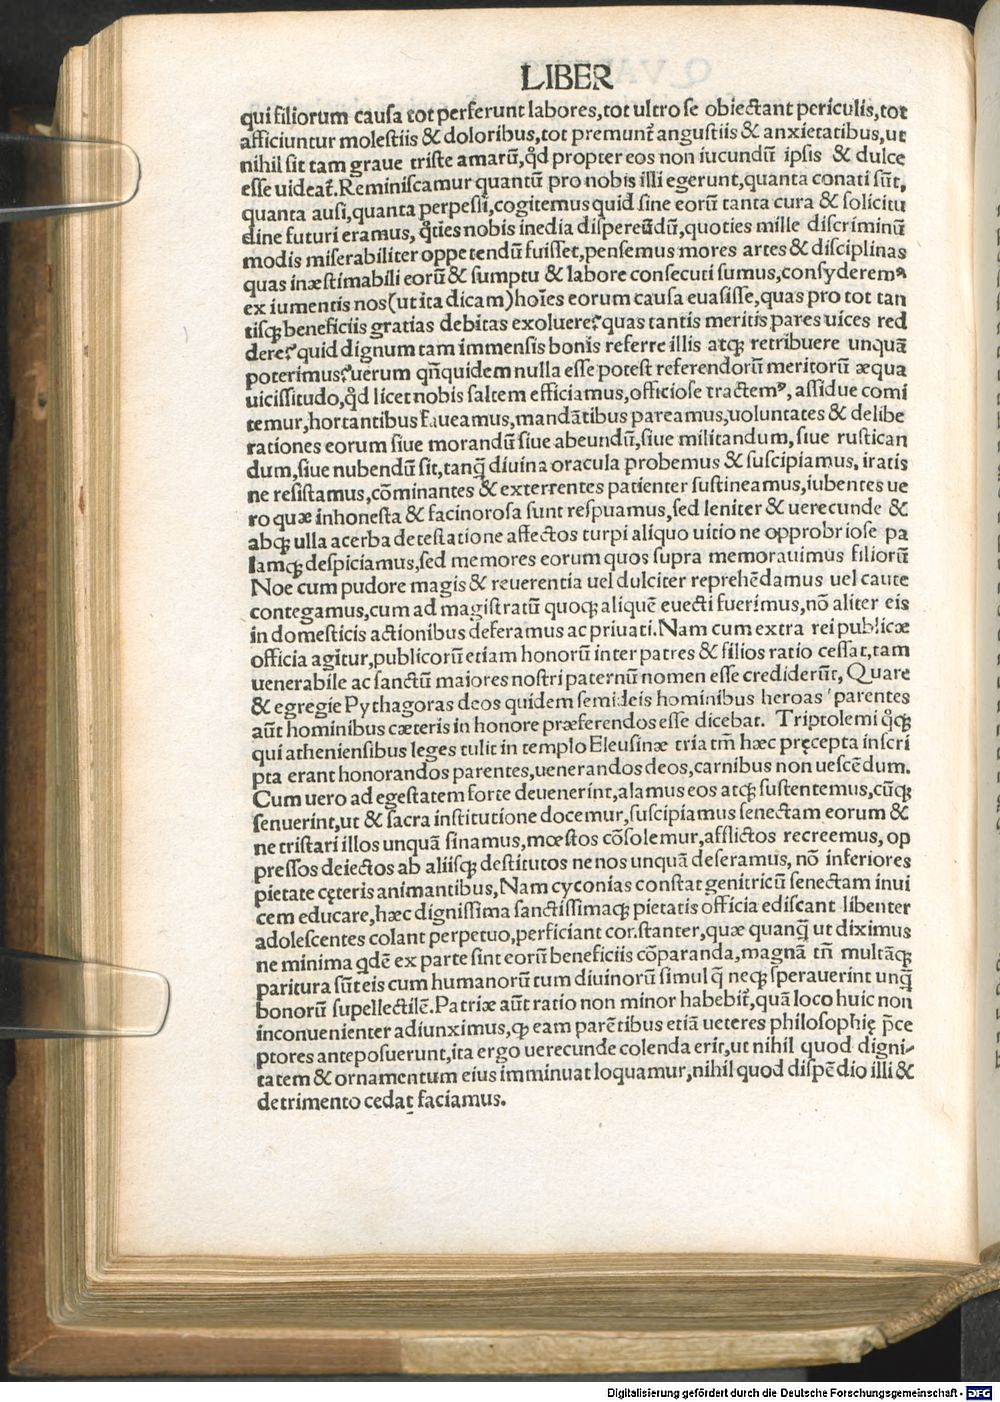 LIBER
qui filiorum cauſa tot perferunt labores,tot ultro ſe obiectant periculis,tot
afficiuntur moleſtiis & doloribus,tot premunt̃ anguſtiis & anxietatibus,ut
nihil ſit tam graue triſte amarũ,qd̃ propter eos non iucundũ ipſis & dulce
eſſe uideat̃.Reminiſcamur quantũ pro nobis illi egerunt,quanta conati ſũt,
quanta auſi,quanta perpeſſi,cogitemus quid ſine eorũ tanta cura & ſolicitu
dine futuri eramus, q̃ties nobis inedia diſpereũdũ,quoties mille diſcriminũ
modis miſerabiliter oppetendũ fuiſſet,penſemus mores artes & diſciplinas
quas inæſtimabili eorũ & ſumptu & labore conſecuti ſumus,conſyderemꝰ
ex iumentis nos(ut ita dicam)hoĩes eorum cauſa euaſiſſe,quas pro tot tan
tiſqꝫ beneficiis gratias debitas exoluere?quas tantis meritis pares uices red
dere?quid dignum tam immenſis bonis referre illis atqꝫ retribuere unquã
poterimus?uerum qñquidem nulla eſſe poteſt referendorũ meritorũ æqua
uiciſſitudo,qd̃ licet nobis ſaltem efficiamus,officioſe tractemꝰ, aſſidue comi
temur,hortantibus faueamus,mandãtibus pareamus,uoluntates & delibe
rationes eorum ſiue morandũ ſiue abeundũ,ſiue militandum, ſiue ruſtican
dum,ſiue nubendũ ſit,tanq̃ diuina oracula probemus & ſuſcipiamus, iratis
ne reſiſtamus,cõminantes & exterrentes patienter ſuſtineamus,iubentes ue
ro quæ inhoneſta & facinoroſa ſunt reſpuamus,ſed leniter & uerecunde &
abqꝫ ulla acerba deteſtatione affectos turpi aliquo uitio ne opprobrioſe pa
lamqꝫ deſpiciamus,ſed memores eorum quos ſupra memorauimus filiorũ
Noe cum pudore magis & reuerentia uel dulciter reprehẽdamus uel caute
contegamus,cum ad magiſtratũ quoqꝫ aliquẽ euecti fuerimus,nõ aliter eis
in domeſticis actionibus deferamus ac priuati.Nam cum extra rei publicæ
officia agitur,publicorũ etiam honorũ inter patres & filios ratio ceſſat,tam
uenerabile ac ſanctũ maiores noſtri paternũ nomen eſſe crediderũt, Quare
& egregie Pythagoras deos quidem ſemideis hominibus heroas parentes
aũt hominibus cæteris in honore præferendos eſſe dicebat. Triptolemi q̊qꝫ
qui athenienſibus leges tulit in templo Eleuſinæ tria tm̃ hæc pręcepta inſcri
pta erant honorandos parentes,uenerandos deos,carnibus non ueſcẽdum.
Cum uero ad egeſtatem forte deuenerint,alamus eos atqꝫ ſuſtentemus,cũqꝫ
ſenuerint,ut & ſacra inſtitutione docemur,ſuſcipiamus ſenectam eorum &
ne triſtari illos unquã ſinamus,mœſtos cõſolemur,afflictos recreemus, op
preſſos deiectos ab aliiſqꝫ deſtitutos ne nos unquã deſeramus, nõ inferiores
pietate cęteris animantibus,Nam cyconias conſtat genitricũ ſenectam inui
cem educare,hæc digniſſima ſanctiſſimaqꝫ pietatis officia ediſcant libenter
adoleſcentes colant perpetuo,perficiant conſtanter,quæ quanq̃ ut diximus
ne minima qdẽ ex parte ſint eorũ beneficiis cõparanda,magnã tñ multãqꝫ
paritura ſũt eis cum humanorũ tum diuinorũ ſimul q̃ neqꝫ ſperauerint unq̃
bonorũ ſupellectilẽ.Patriæ aũt ratio non minor habebit̃,quã loco huic non
inconuenienter adiunximus,ꝙ eam parẽtibus etiã ueteres philoſophię p̃ce
ptores antepoſuerunt,ita ergo uerecunde colenda erit,ut nihil quod digni-
tatem & ornamentum eius imminuat loquamur,nihil quod diſpẽdio illi &
detrimento cedat faciamus.
Digitalisierung gefördert durch die Deutsche Forschungsgemeinschaft - DFG